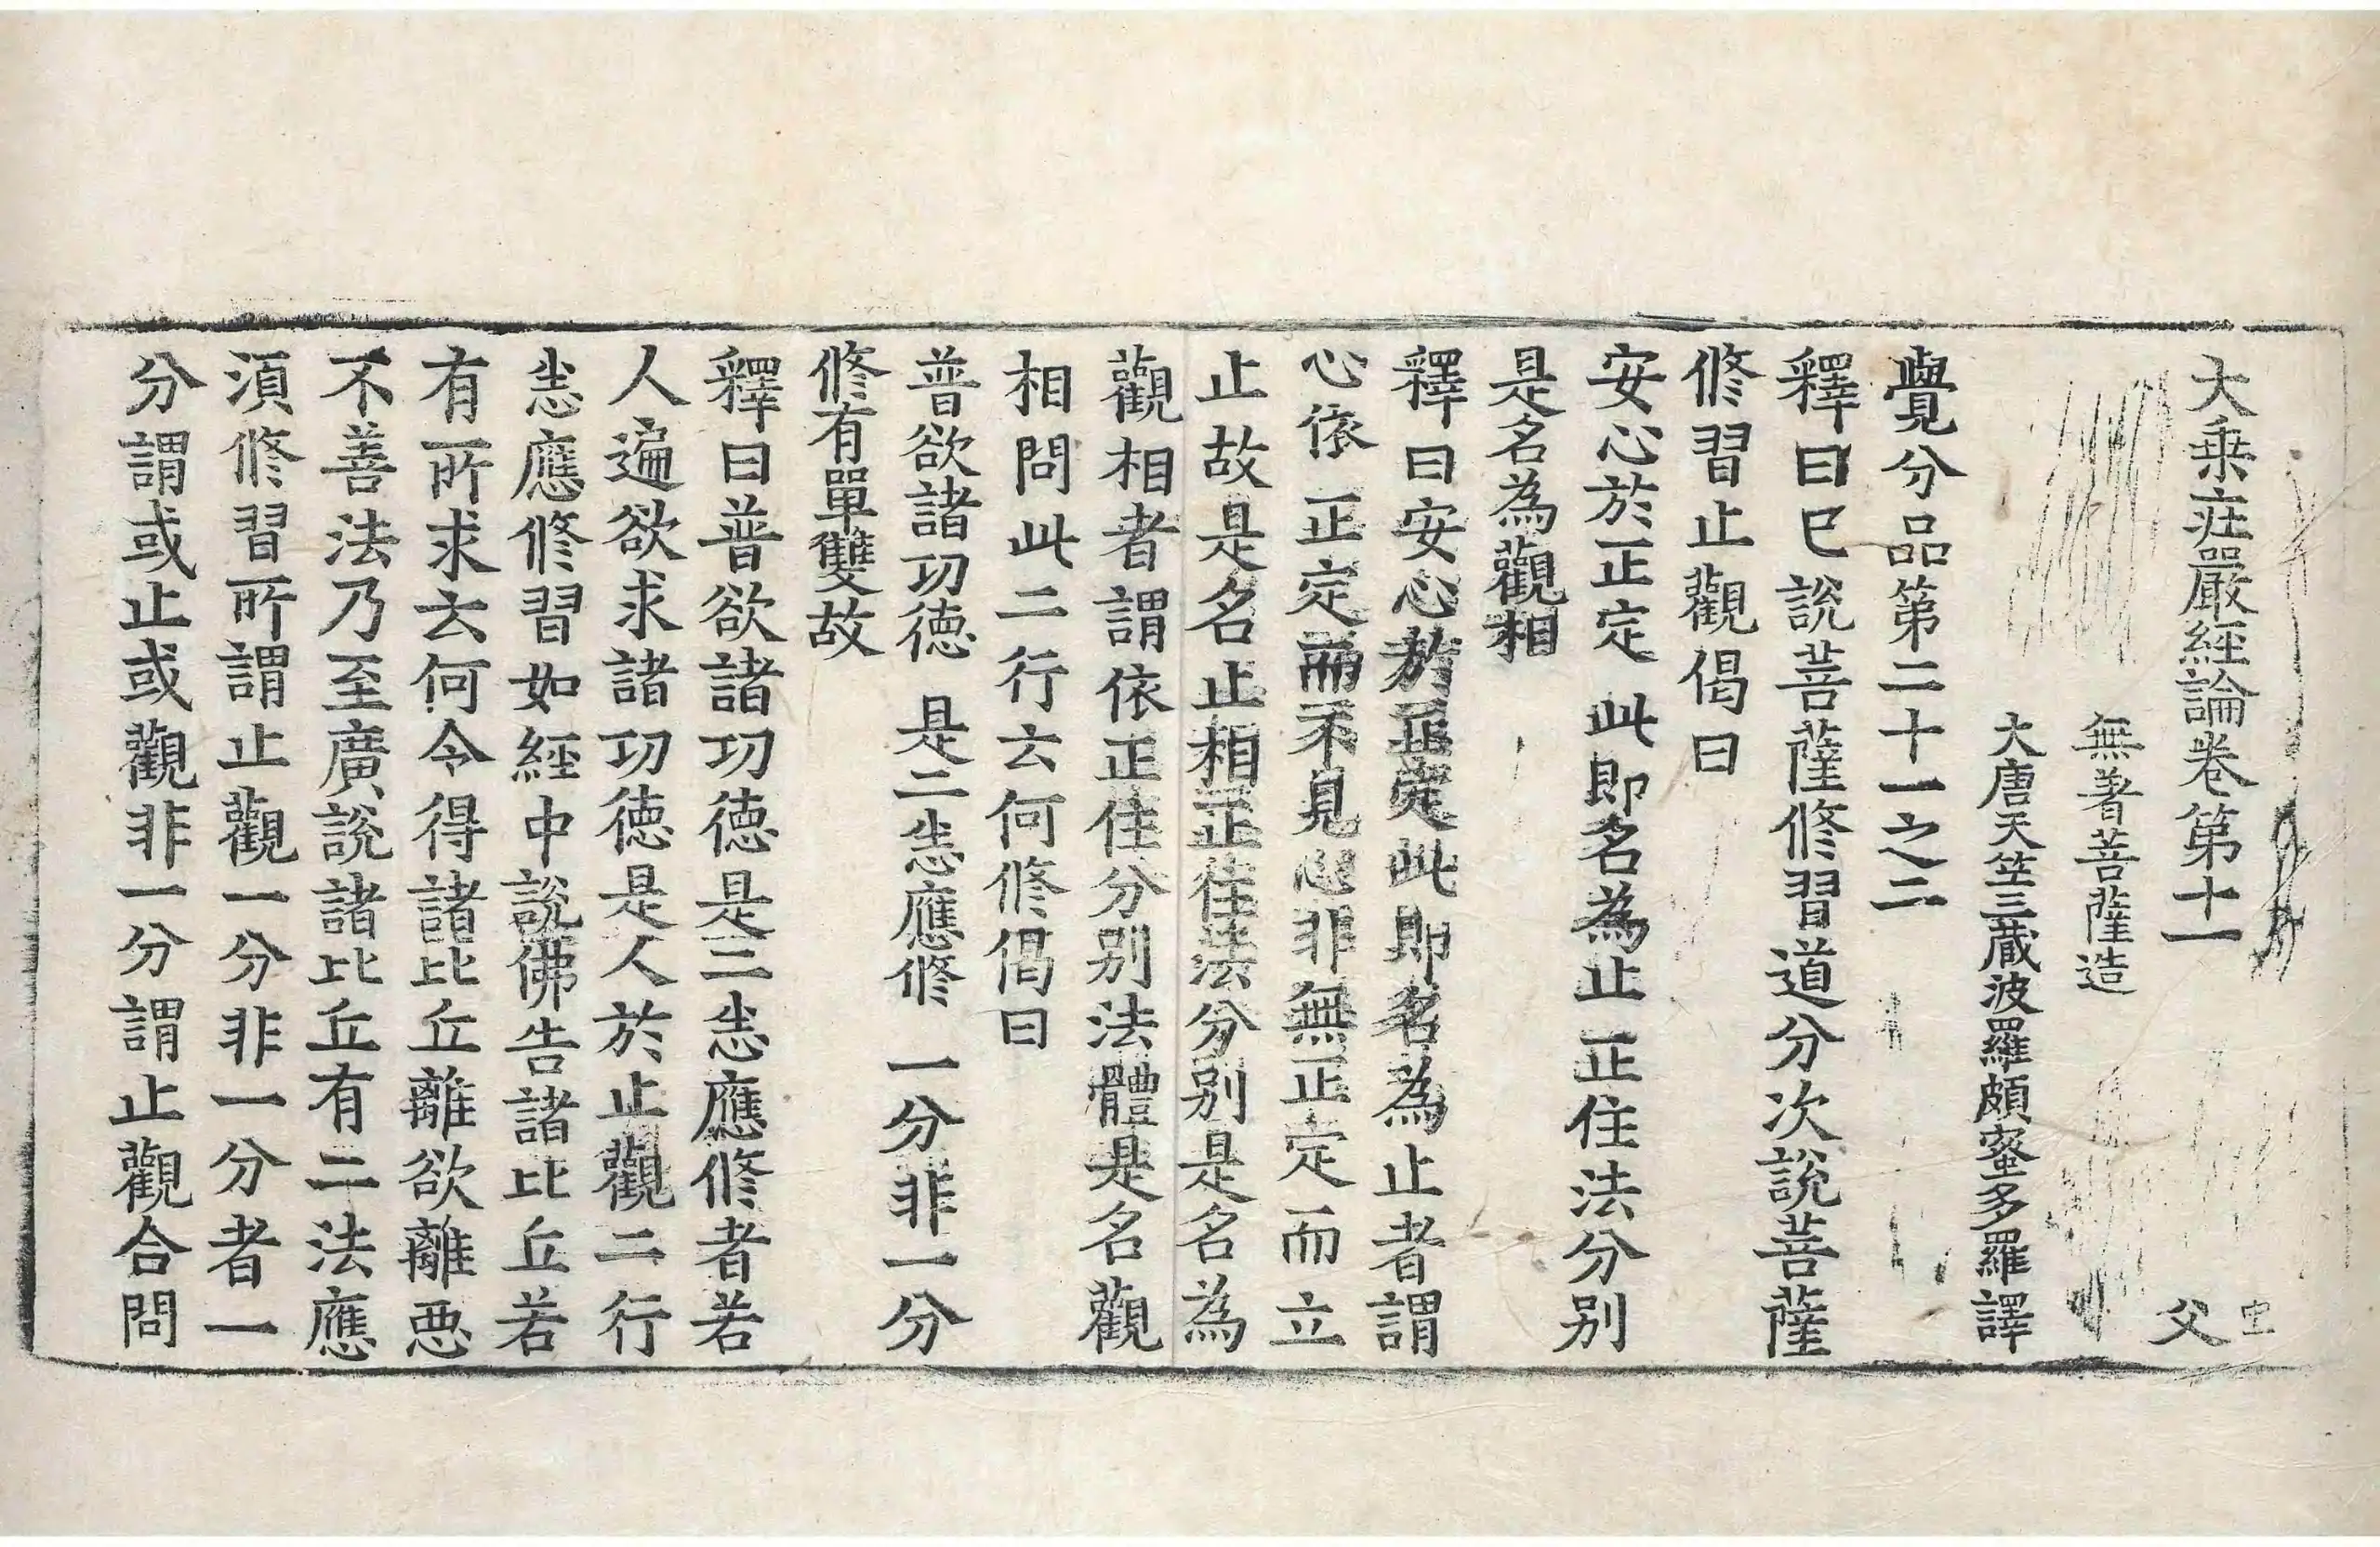 大乗疘嚴經論卷第十一 父
無著菩薩造
大唐天竺三藏波羅頗蜜多羅譯
覺分品第二十一之二
釋曰巳說菩薩修習道分次說菩薩
修習止觀偈曰
安心於正定 此即名為止 正住法分别
是名為觀相
釋曰安心於正定此即名為止者謂
心依正定而不見心非無正定而立
止故是名止相正住法分别是名為
觀相者謂依正住分别法體是名觀
相問此二行云何修偈曰
普欲諸功德 是二恙應修 一分非一分
修有單雙故
釋曰普欲諸功德是二恙應修者若
人遍欲求諸功德是人於止觀二行
恙應修習如經中說佛告諸比丘若
有所求云何令得諸比丘離欲離惡
不善法乃至廣說諸比丘有二法應
須修習所謂止觀一分非一分者一
分謂或止或觀非一分謂止觀合問